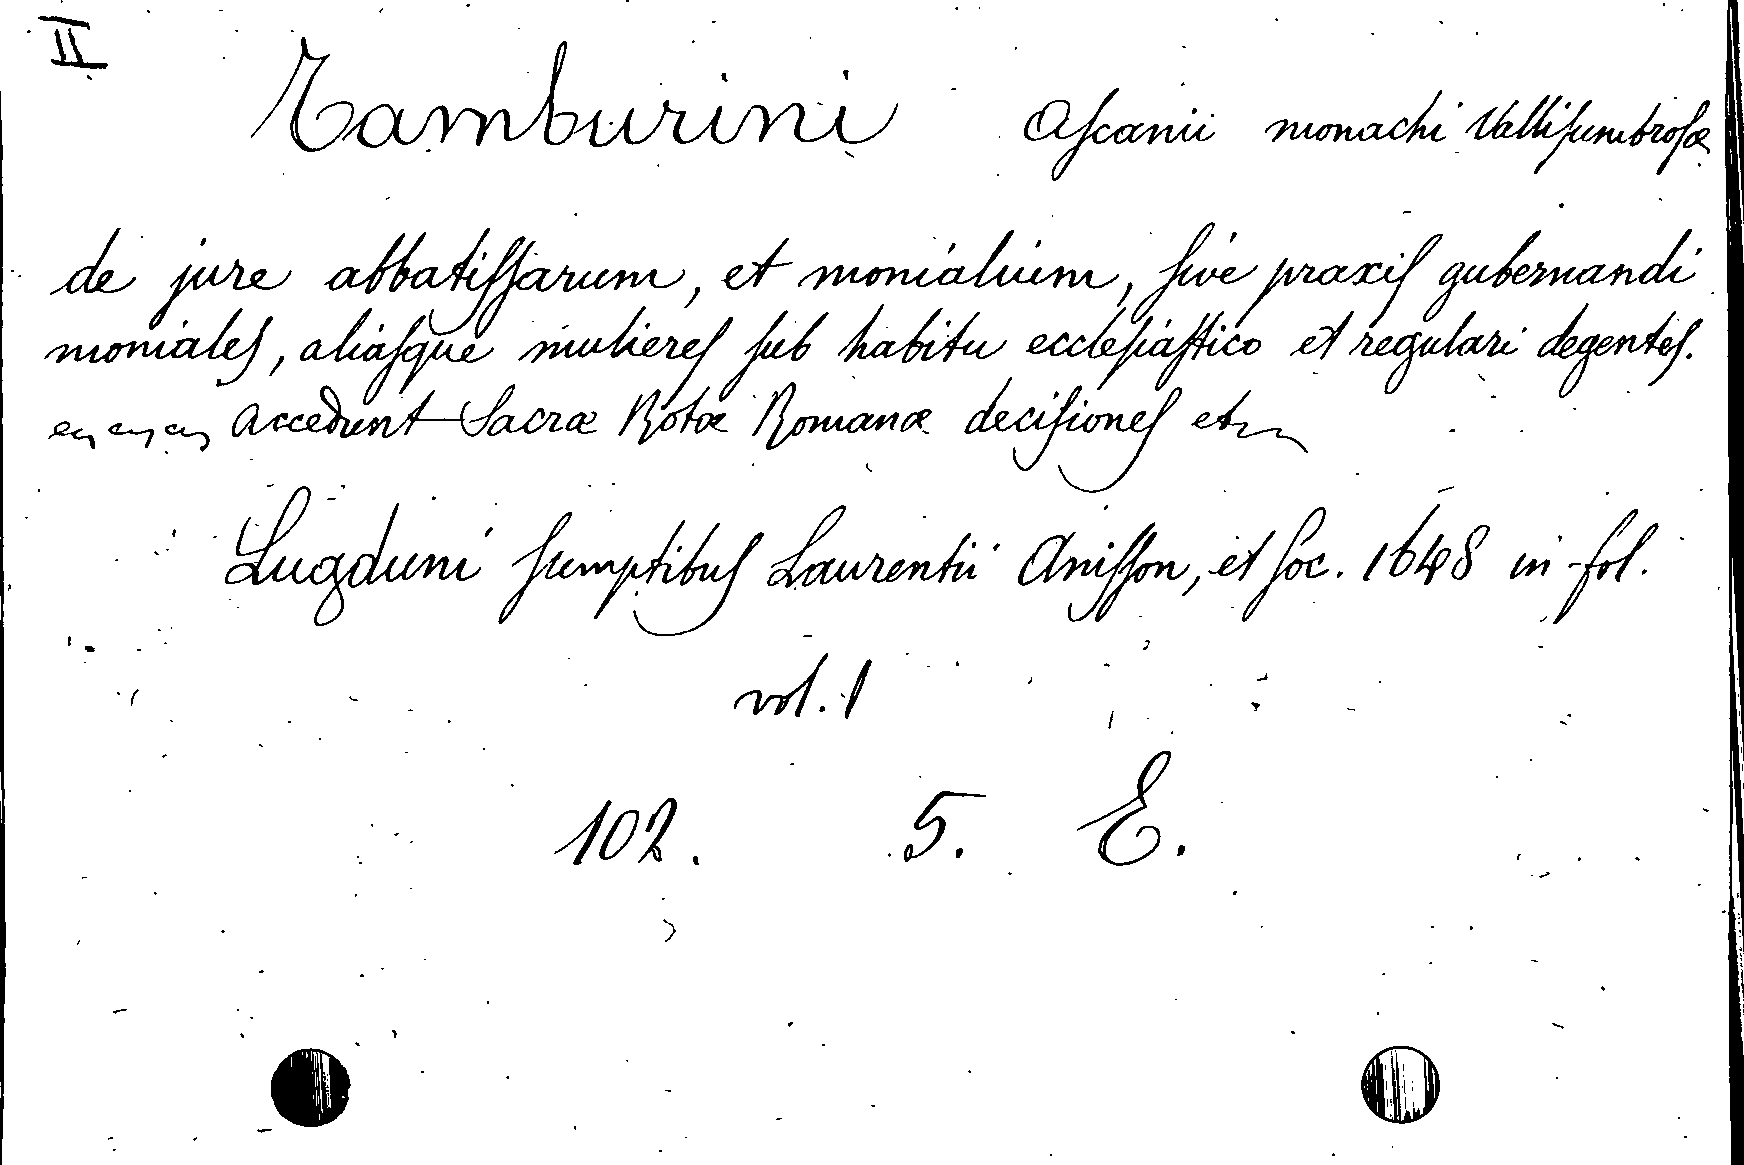 II
Tamburini Aſcanii monachi Valliſumbroſæ
de jure abbatiſſarum, et monialium, ſive praxiſ gubernandi
monialeſ, aliaſque muliereſ ſub habitu eccleſiaſtico et regulari degenteſ.
accedunt Sacræ Rotæ Romanæ deciſioneſ et
Lugduni ſumptibuſ Laurentii Aniſſon, et ſoc. 1648 in-fol.
vol. 1
102. 5. E.